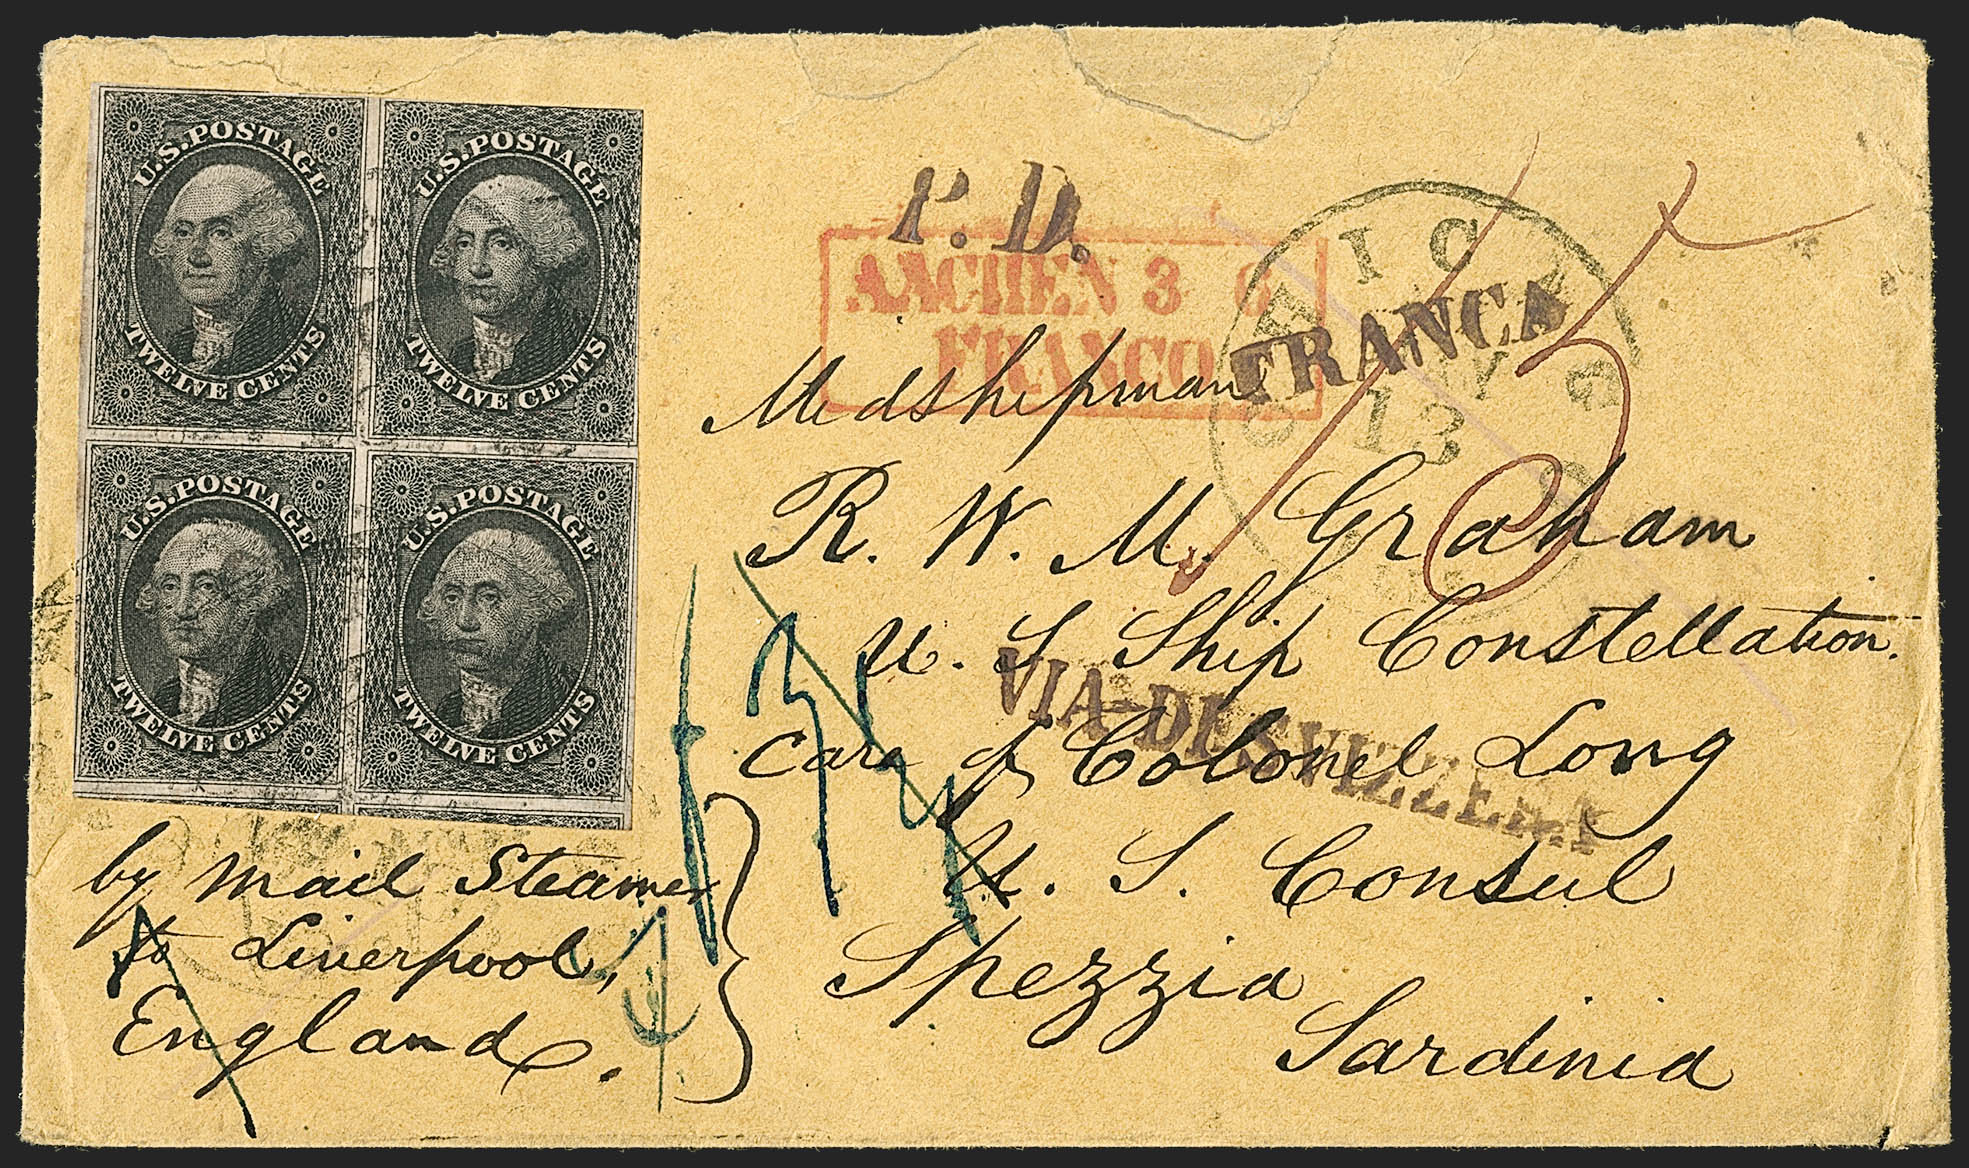 U.S. POSTAGE
TWELVE CENTS
U.S. POSTAGE
TWELVE CENTS
U.S. POSTAGE
TWELVE CENTS
U.S. POSTAGE
TWELVE CENTS
P. D.
AACHEN 3 6
FRANCO
FRANCA
13
Medshipman
R. W. M. Graham
U. S Ship Constellation.
VIA-DI SVIZZERA
Care of Colonel Long
U. S. Consul
Spezzia
Sardinia
by Mail Steamer
to Liverpool,
England.